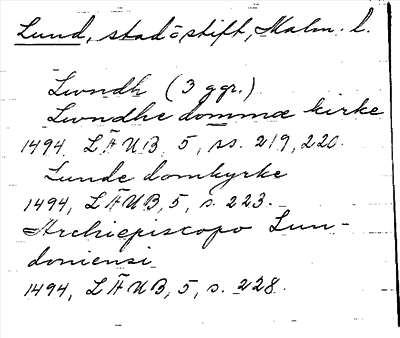 Lund, stad o stift, Malm. l.
Lwndh (3 ggr.)
Lwndhe dommæ kirke
1494, LÄUB, 5, ss. 219, 220.
Lunde domkyrke
1494, LÄUB, 5, s. 223.
Archiepiscopo Lun-
doniensi
1494, LÄUB, 5, s. 228.